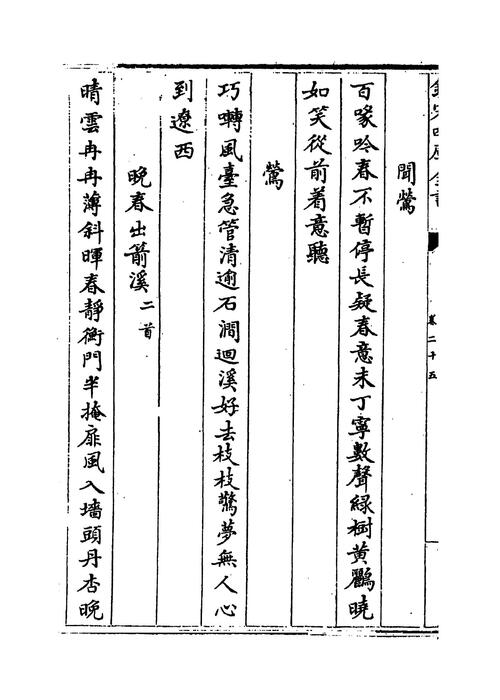 欽定四庫全書
卷二十五
聞鶯
百喙吟春不暫停長疑春意未丁寧數聲緑樹黄鸝曉
如笑從前着意聽
鶯
巧囀風臺急管清逾石澗迴溪好去枝枝驚夢無人心
到遼西
晚春出箭溪二首
晴雲冉冉薄斜暉春靜衡門半掩扉風入墻頭丹杏晚